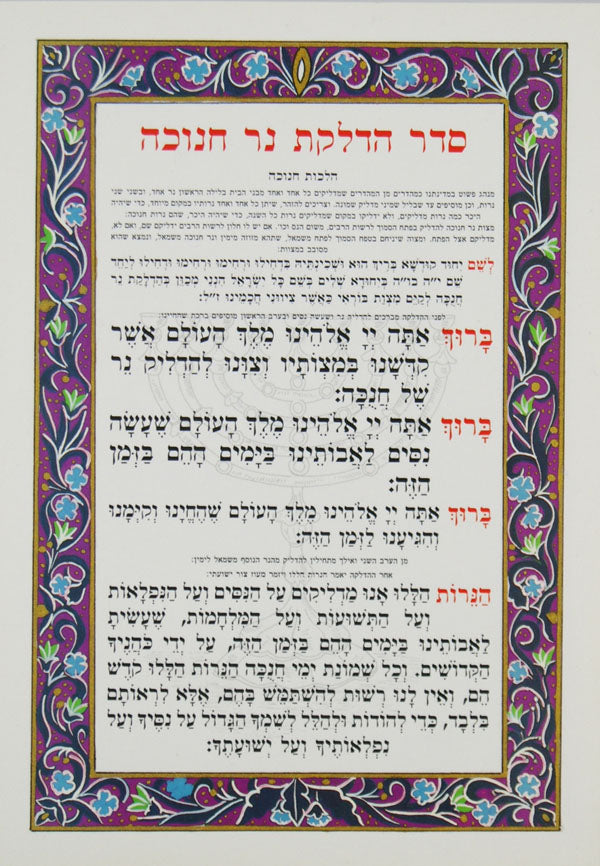 סדר הדלקת נר חנוכה
הלכות חנוכה
מנהג פשוט במדינתנו כמהדרים מן המהדרים שמדליקים כל אחד ואחד מבני הבית בלילה הראשון נר אחד, ובשני שני
נרות, וכן מוסיפים עד שבליל שמיני מדליק שמונה. וצריכים להזהר, שיתן כל אחד ואחד נרותיו במקום מיוחד, כדי שיהיה
היכר כמה נרות מדליקים, ולא ידליקו במקום שמדליקים נרות כל השנה, כדי שיהיה היכר, שהם נרות חנוכה:
מצות נר חנוכה להדליק בפתח הסמוך לרשות הרבים, משום הנס וכו׳. אם יש לו חלון לרשות הרבים ידליקם שם, ואם לא,
מדליקם אצל הפתח, ומצוה שיניחם בטפח הסמוך לפתח משמאל, שתהא מזוזה מימין ונר חנוכה משמאל, ונמצא שהוא
מסובב במצוות:
לְשֵׁם יִחוּד קוּדְשָׁא בְּרִיךְ הוּא וּשְׁכִינְתֵּיהּ בִּדְחִילוּ וּרְחִימוּ וּרְחִימוּ וּדְחִילוּ לְיַחֵד
שֵׁם י״ה בו״ה בְּיִחוּדָא שְׁלִים בְּשֵׁם כָּל יִשְׂרָאֵל הִנְנִי מְכַוֵּן בְּהַדְלָקַת נֵר
חֲנֻכָּה לְקַיֵּם מִצְוַת בּוֹרְאִי כַּאֲשֶׁר צִיווּנִי חֲכָמֵינוּ ז״ל:
לפני ההדלקה מברכים להדליק נר ושעשה נסים ובערב הראשון מוסיפים ברכת שהחיינו:
בָּרוּךְ אַתָּה יְיָ אֱלֹהֵינוּ מֶלֶךְ הָעוֹלָם אֲשֶׁר
קִדְּשָׁנוּ בְּמִצְוֹתָיו וְצִוָּנוּ לְהַדְלִיק נֵר
שֶׁל חֲנֻכָּה:
בָּרוּךְ אַתָּה יְיָ אֱלֹהֵינוּ מֶלֶךְ הָעוֹלָם שֶׁעָשָׂה
נִסִּים לַאֲבוֹתֵינוּ בַּיָּמִים הָהֵם בַּזְּמַן
הַזֶּה:
בָּרוּךְ אַתָּה יְיָ אֱלֹהֵינוּ מֶלֶךְ הָעוֹלָם שֶׁהֶחֱיָנוּ וְקִיְּמָנוּ
וְהִגִּיעָנוּ לַזְּמַן הַזֶּה:
מן הערב השני ואילך מתחילין להדליק מהנר הנוסף משמאל לימין:
אחר ההדלקה יאמר הנרות הללו ויזמר מעוז צור ישועתי:
הַנֵּרוֹת הַלָּלוּ אָנוּ מַדְלִיקִים עַל הַנִּסִּים וְעַל הַנִּפְלָאוֹת
וְעַל הַתְּשׁוּעוֹת וְעַל הַמִּלְחָמוֹת, שֶׁעָשִׂיתָ
לַאֲבוֹתֵינוּ בַּיָּמִים הָהֵם בַּזְּמַן הַזֶּה, עַל יְדֵי כֹּהֲנֶיךָ
הַקְּדוֹשִׁים. וְכָל שְׁמוֹנַת יְמֵי חֲנֻכָּה הַנֵּרוֹת הַלָּלוּ קֹדֶשׁ
הֵם, וְאֵין לָנוּ רְשׁוּת לְהִשְׁתַּמֵּשׁ בָּהֶם, אֶלָּא לִרְאוֹתָם
בִּלְבָד, כְּדֵי לְהוֹדוֹת וּלְהַלֵּל לְשִׁמְךָ הַגָּדוֹל עַל נִסֶּיךָ וְעַל
נִפְלְאוֹתֶיךָ וְעַל יְשׁוּעָתֶךָ: